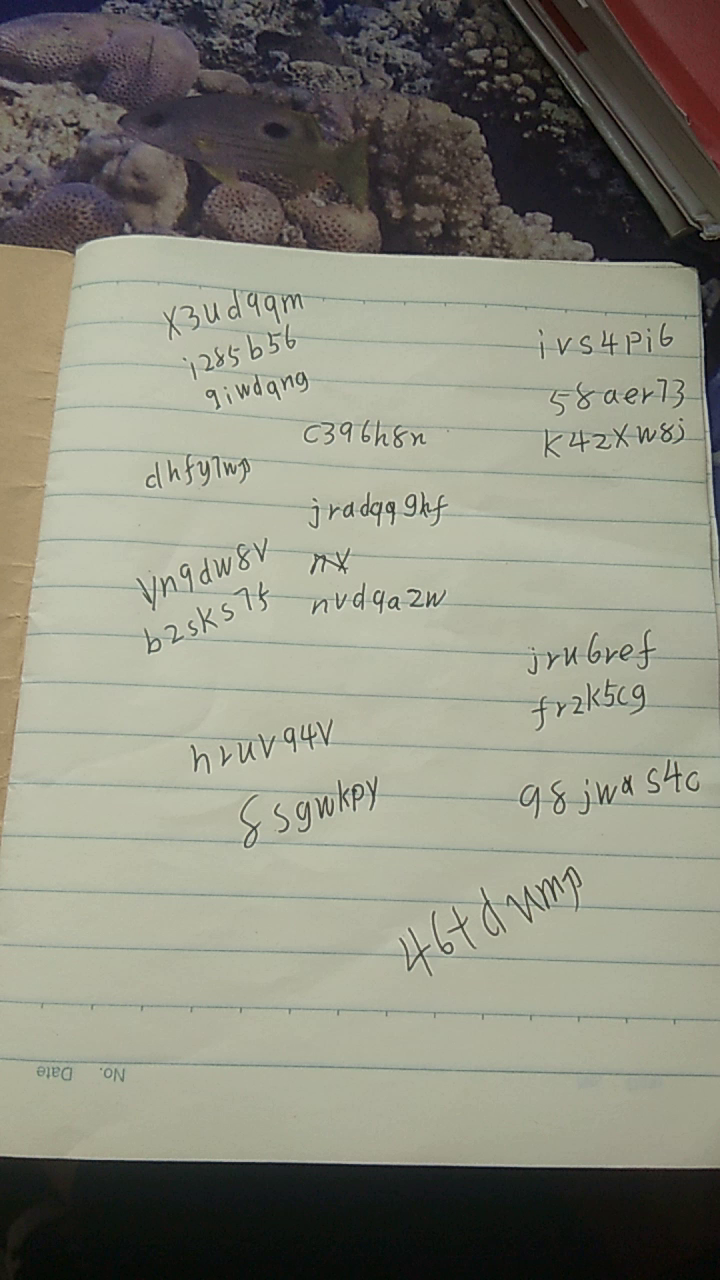 x3udqqm
i285b56
qiwdqng
ivs4pi6
58aer73
k42xw8j
c396h8n
dhfy7wp
jradqq9hf
vnqdw8v
nx
b2sks75
nvdqa2w
jru6ref
frzk5cg
hruvq4v
8sgwkpy
98jwas4c
46tdump
No. Date